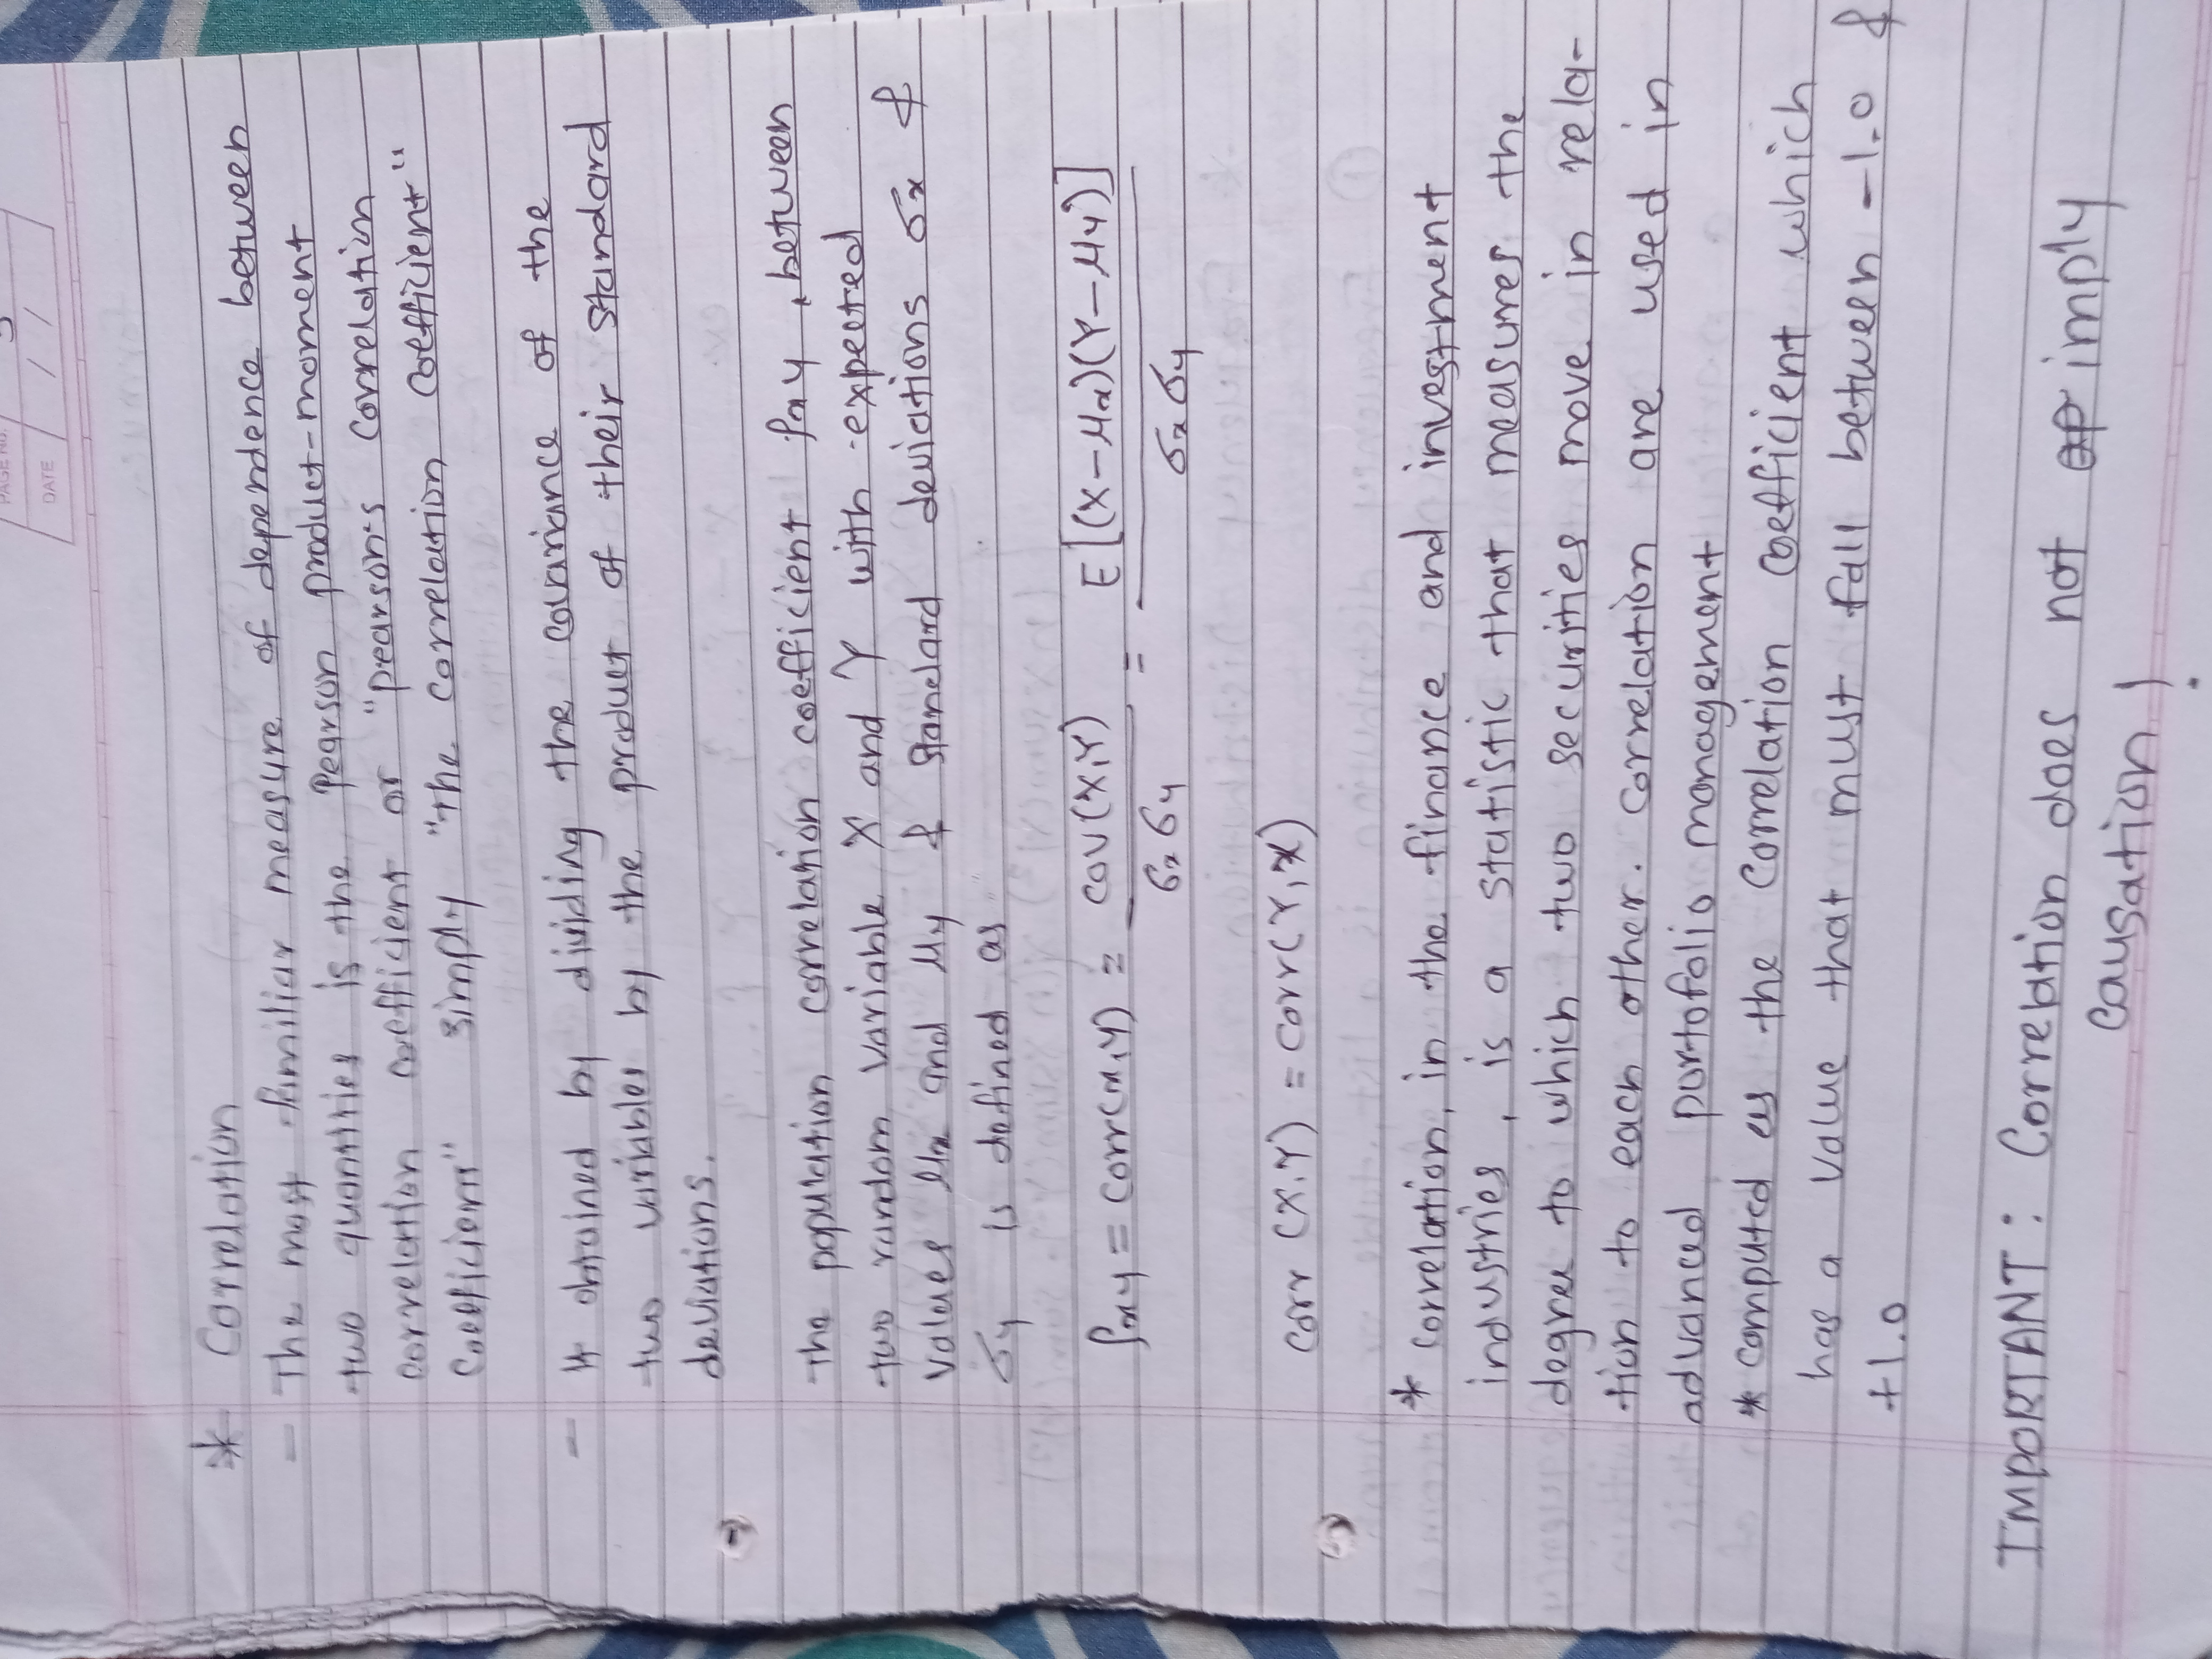 PAGE NO.
DATE / /
* Correlation
- The most familiar measure of dependence between
two quantities is the Pearson product-moment
correlation coefficient or "pearson's correlation
Coefficient" simply "the correlation coefficient"
- It obtained by dividing the covariance of the
two variables by the product of their standard
deviations.
The population correlation coefficient ρxy, between
two random variable X and Y with expected
values μx and μy & standard deviations σx &
σy is defined as
ρxy = corr(x,y) = cov(X,Y) / σx σy = E[(X-μx)(Y-μy)] / σx σy
corr (X,Y) = corr(Y,X)
* correlation, in the finance and investment
industries, is a statistic that measures the
degree to which two securities move in rela-
tion to each other. correlation are used in
advanced portofolio management
* computed as the correlation coefficient which
has a value that must fall between -1.0 &
+1.0
IMPORTANT: Correlation does not imply
causation!